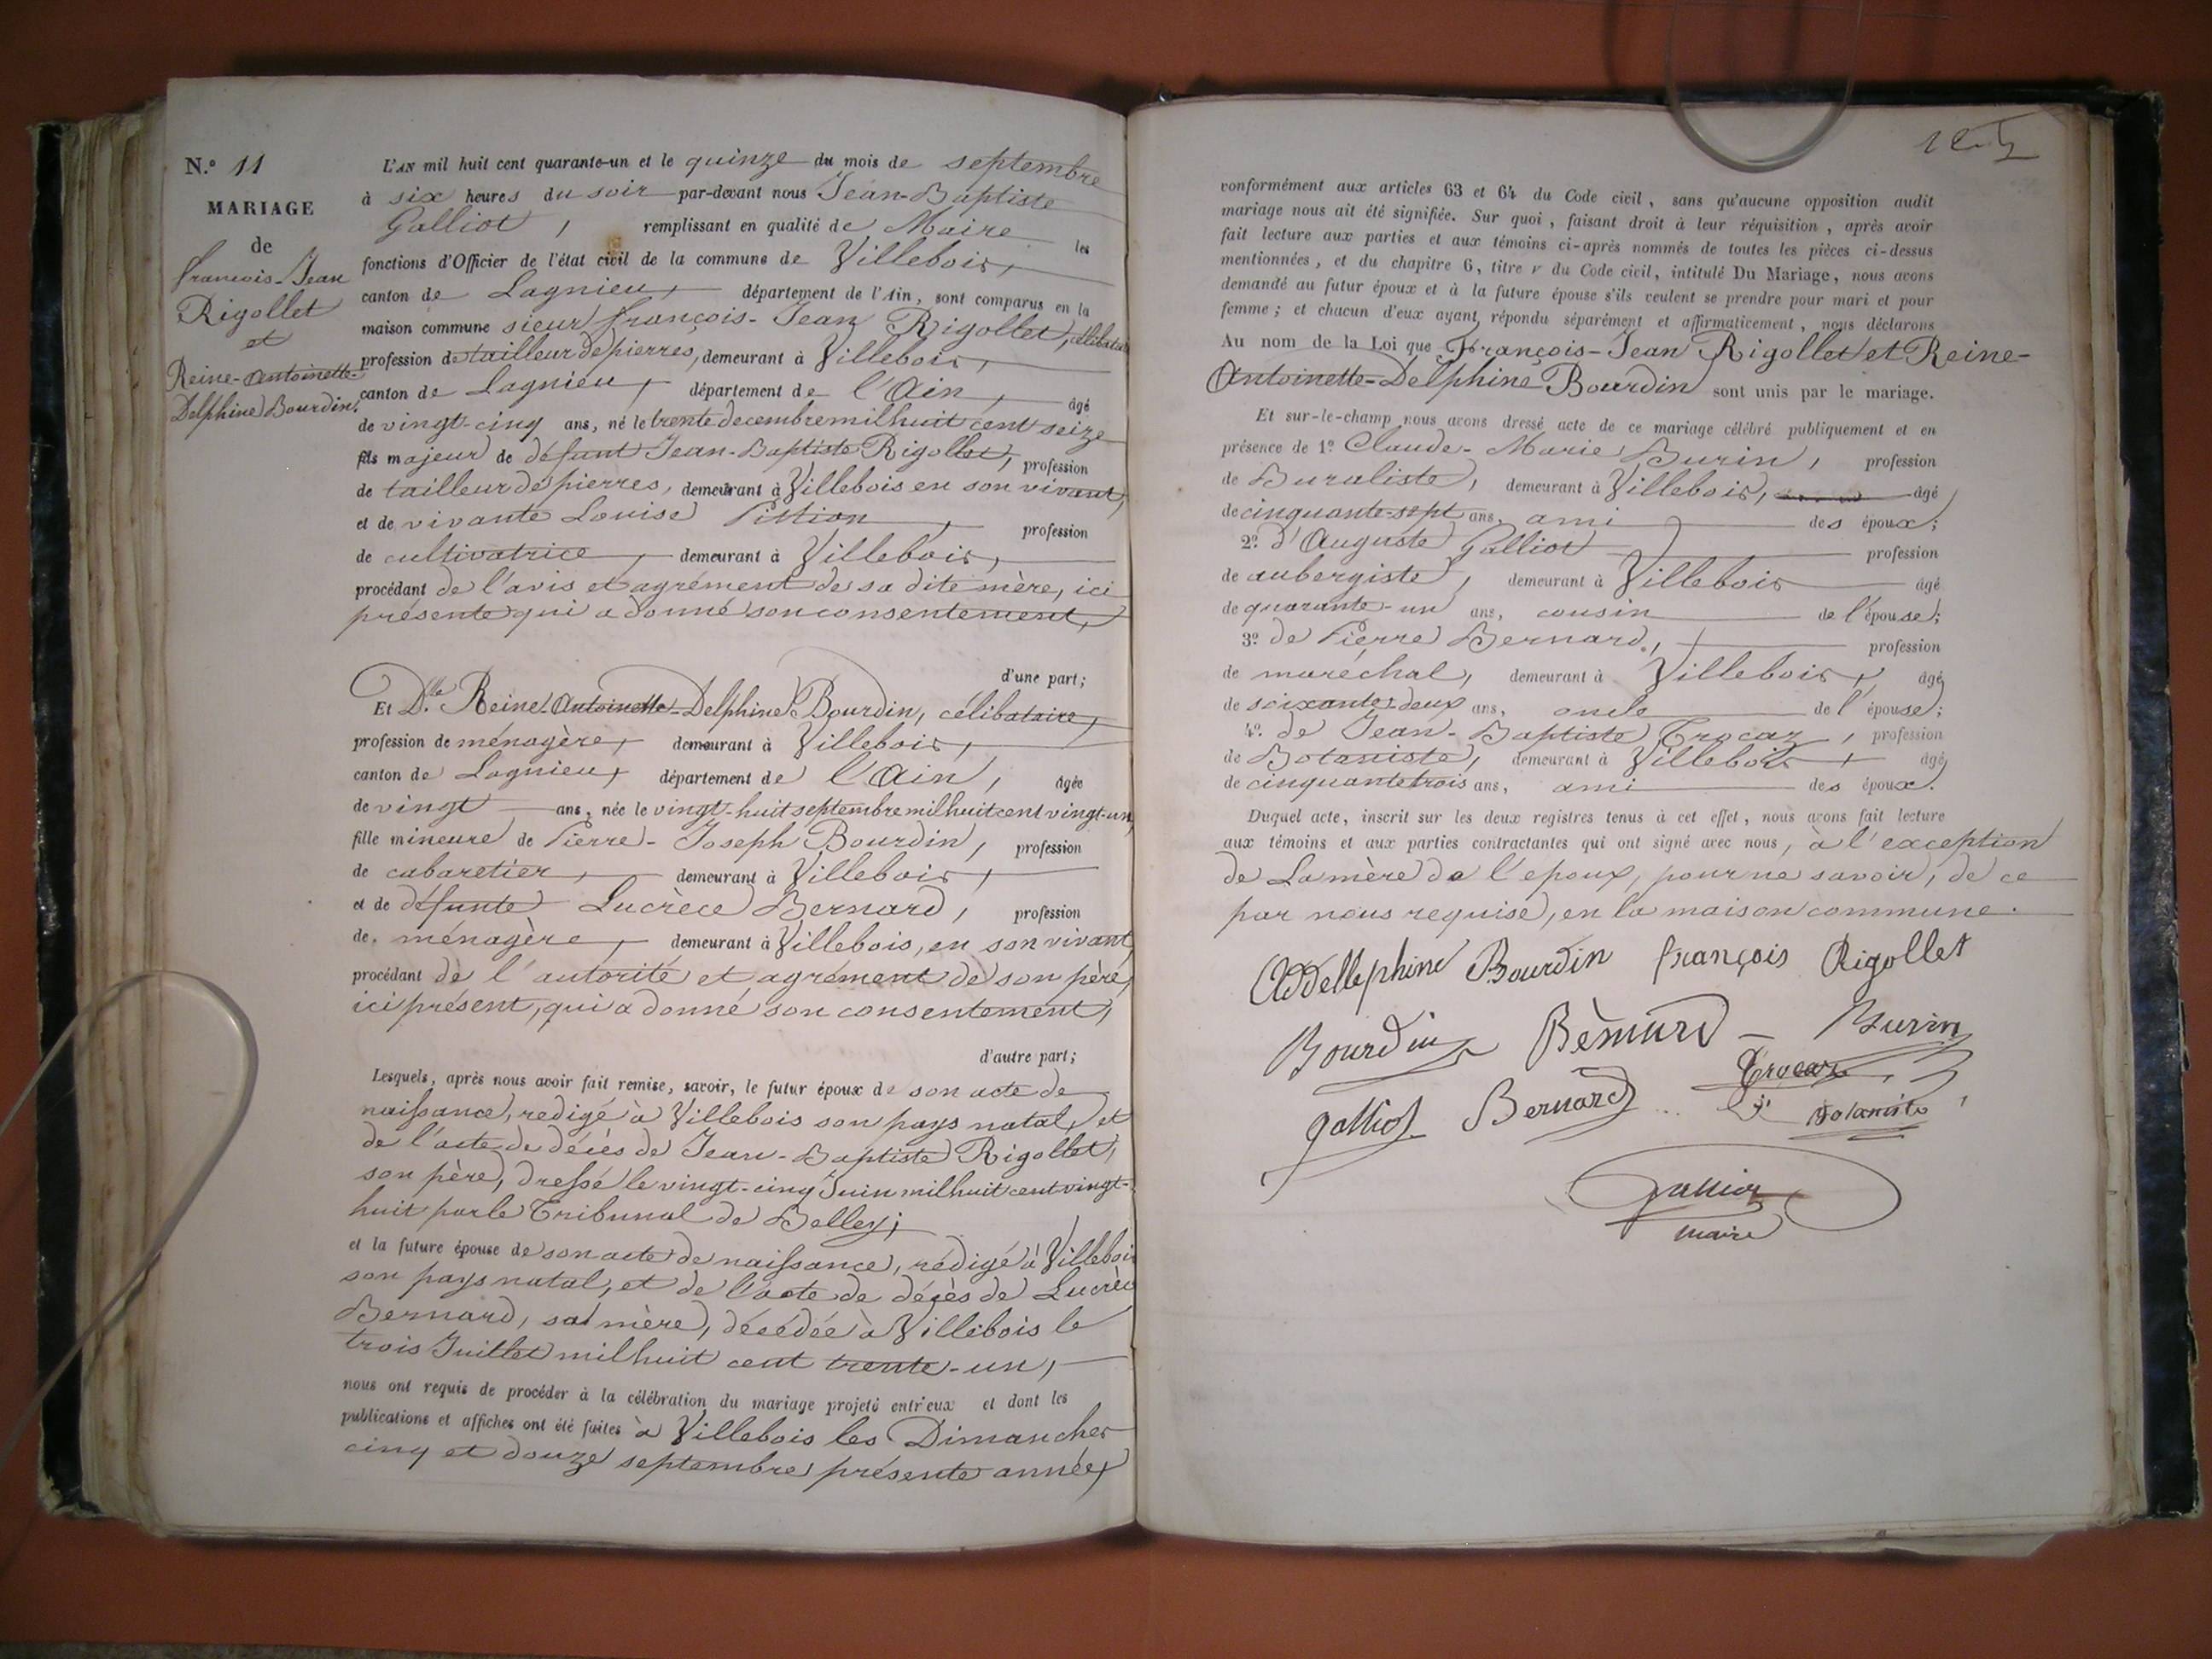 N.º 11
MARIAGE
de
françois-Jean
Rigollet
et
Reine-Antoinette-
Delphine Bourdin.
L'AN mil huit cent quarante-un et le quinze du mois de septembre
à six heures du soir par-devant nous Jean-Baptiste
Galliot, remplissant en qualité de Maire les
fonctions d'Officier de l'état civil de la commune de Villebois,
canton de Lagnieu, département de l'Ain, sont comparus en la
maison commune sieur françois-Jean Rigollet, célibataire
profession de tailleur de pierres, demeurant à Villebois,
canton de Lagnieu, département de l'Ain, âgé
de vingt-cinq ans, né le trente decembre mil huit cent seize
fils majeur de défunt Jean-Baptiste Rigollet, profession
de tailleur de pierres, demeurant à Villebois en son vivant,
et de vivante Louise Pittion, profession
de cultivatrice, demeurant à Villebois,
procédant de l'avis et agrément de sa dite mère, ici
présente qui a donné son consentement,
d'une part;
Et D.lle Reine-Antoinette-Delphine Bourdin, célibataire,
profession de ménagère, demeurant à Villebois,
canton de Lagnieu, département de l'Ain, âgée
de vingt ans, née le vingt-huit septembre mil huit cent vingt-un,
fille mineure de Pierre-Joseph Bourdin, profession
de cabaretier, demeurant à Villebois,
et de défunte Lucrèce Bernard, profession
de ménagère, demeurant à Villebois, en son vivant,
procédant de l'autorité et agrément de son père,
ici présent, qui a donné son consentement,
d'autre part;
Lesquels, après nous avoir fait remise, savoir, le futur époux de son acte de
naissance, redigé à Villebois son pays natal, et
de l'acte de décès de Jean-Baptiste Rigollet,
son père, dressé le vingt-cinq Juin mil huit cent vingt-
huit par le Tribunal de Belley;
et la future épouse de son acte de naissance, rédigé à Villebois
son pays natal, et de l'acte de décès de Lucrèce
Bernard, sa mère, décédée à Villebois le
trois Juillet mil huit cent trente-un,
nous ont requis de procéder à la célébration du mariage projeté entr'eux et dont les
publications et affiches ont été faites à Villebois les Dimanches
cinq et douze septembre, présente année,
conformément aux articles 63 et 64 du Code civil, sans qu'aucune opposition audit
mariage nous ait été signifiée. Sur quoi, faisant droit à leur réquisition, après avoir
fait lecture aux parties et aux témoins ci-après nommés de toutes les pièces ci-dessus
mentionnées, et du chapitre 6, titre v du Code civil, intitulé Du Mariage, nous avons
demandé au futur époux et à la future épouse s'ils veulent se prendre pour mari et pour
femme; et chacun d'eux ayant répondu séparément et affirmativement, nous déclarons
Au nom de la Loi que François-Jean Rigollet et Reine-
Antoinette-Delphine Bourdin sont unis par le mariage.
Et sur-le-champ nous avons dressé acte de ce mariage célébré publiquement et en
présence de 1º Claude-Marie Burin, profession
de Buraliste, demeurant à Villebois, âgé
de cinquante-sept ans, ami des époux;
2º d'Auguste Galliot profession
de aubergiste, demeurant à Villebois âgé
de quarante-un ans, cousin de l'épouse;
3º de Pierre Bernard, profession
de maréchal, demeurant à Villebois, âgé
de soixante-deux ans, oncle de l'épouse;
4º. de Jean-Baptiste Trocaz, profession
de Botaniste, demeurant à Villebois âgé
de cinquante trois ans, ami des époux.
Duquel acte, inscrit sur les deux registres tenus à cet effet, nous avons fait lecture
aux témoins et aux parties contractantes qui ont signé avec nous, à l'exception
de La mère de l'epoux, pour ne savoir, de ce
par nous requise, en la maison commune.
Addellephine Bourdin françois Rigollet
Bourdin Bernard Burin
Trocaz
galliot Bernard Botaniste
galliot
maire